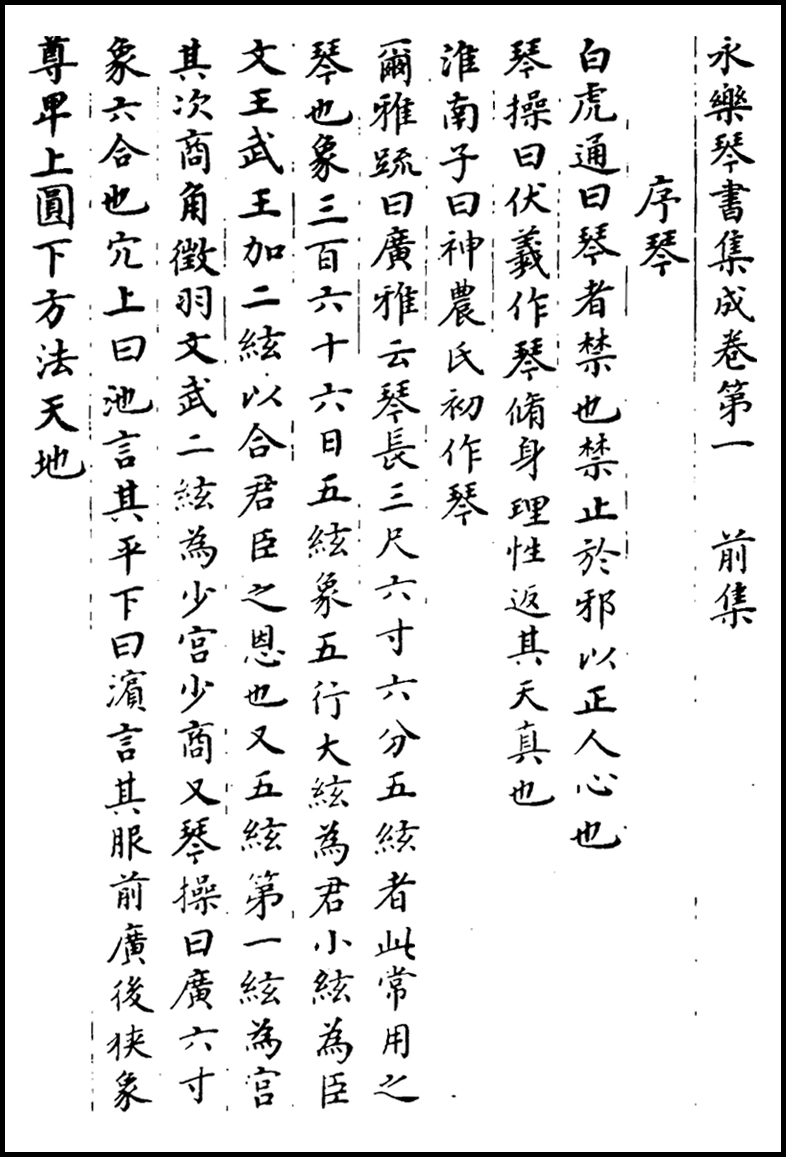 永樂琴書集成卷第一　前集
序琴
白虎通曰琴者禁也禁止於邪以正人心也
琴操曰伏羲作琴脩身理性返其天真也
淮南子曰神農氏初作琴
爾雅䟽曰廣雅云琴長三尺六寸六分五絃者此常用之
琴也象三百六十六日五絃象五行大絃為君小絃為臣
文王武王加二絃以合君臣之恩也又五絃第一絃為宮
其次商角徵羽文武二絃為少宮少商又琴操曰廣六寸
象六合也宂上曰池言其平下曰濵言其服前廣後狹象
尊卑上圓下方法天地